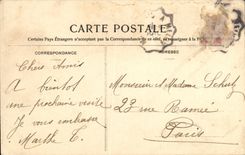 CARTE POSTALE
Certains Pays Étrangers n'acceptent pas la Correspondance de ce côté, se renseigner à la Poste
CORRESPONDANCE
ADRESSE
Chers Amis
A bientôt
une prochaine visite
Je vous embrasse
Marthe T.
Monsieur & Madame Schutz
23 rue Ramée
Paris